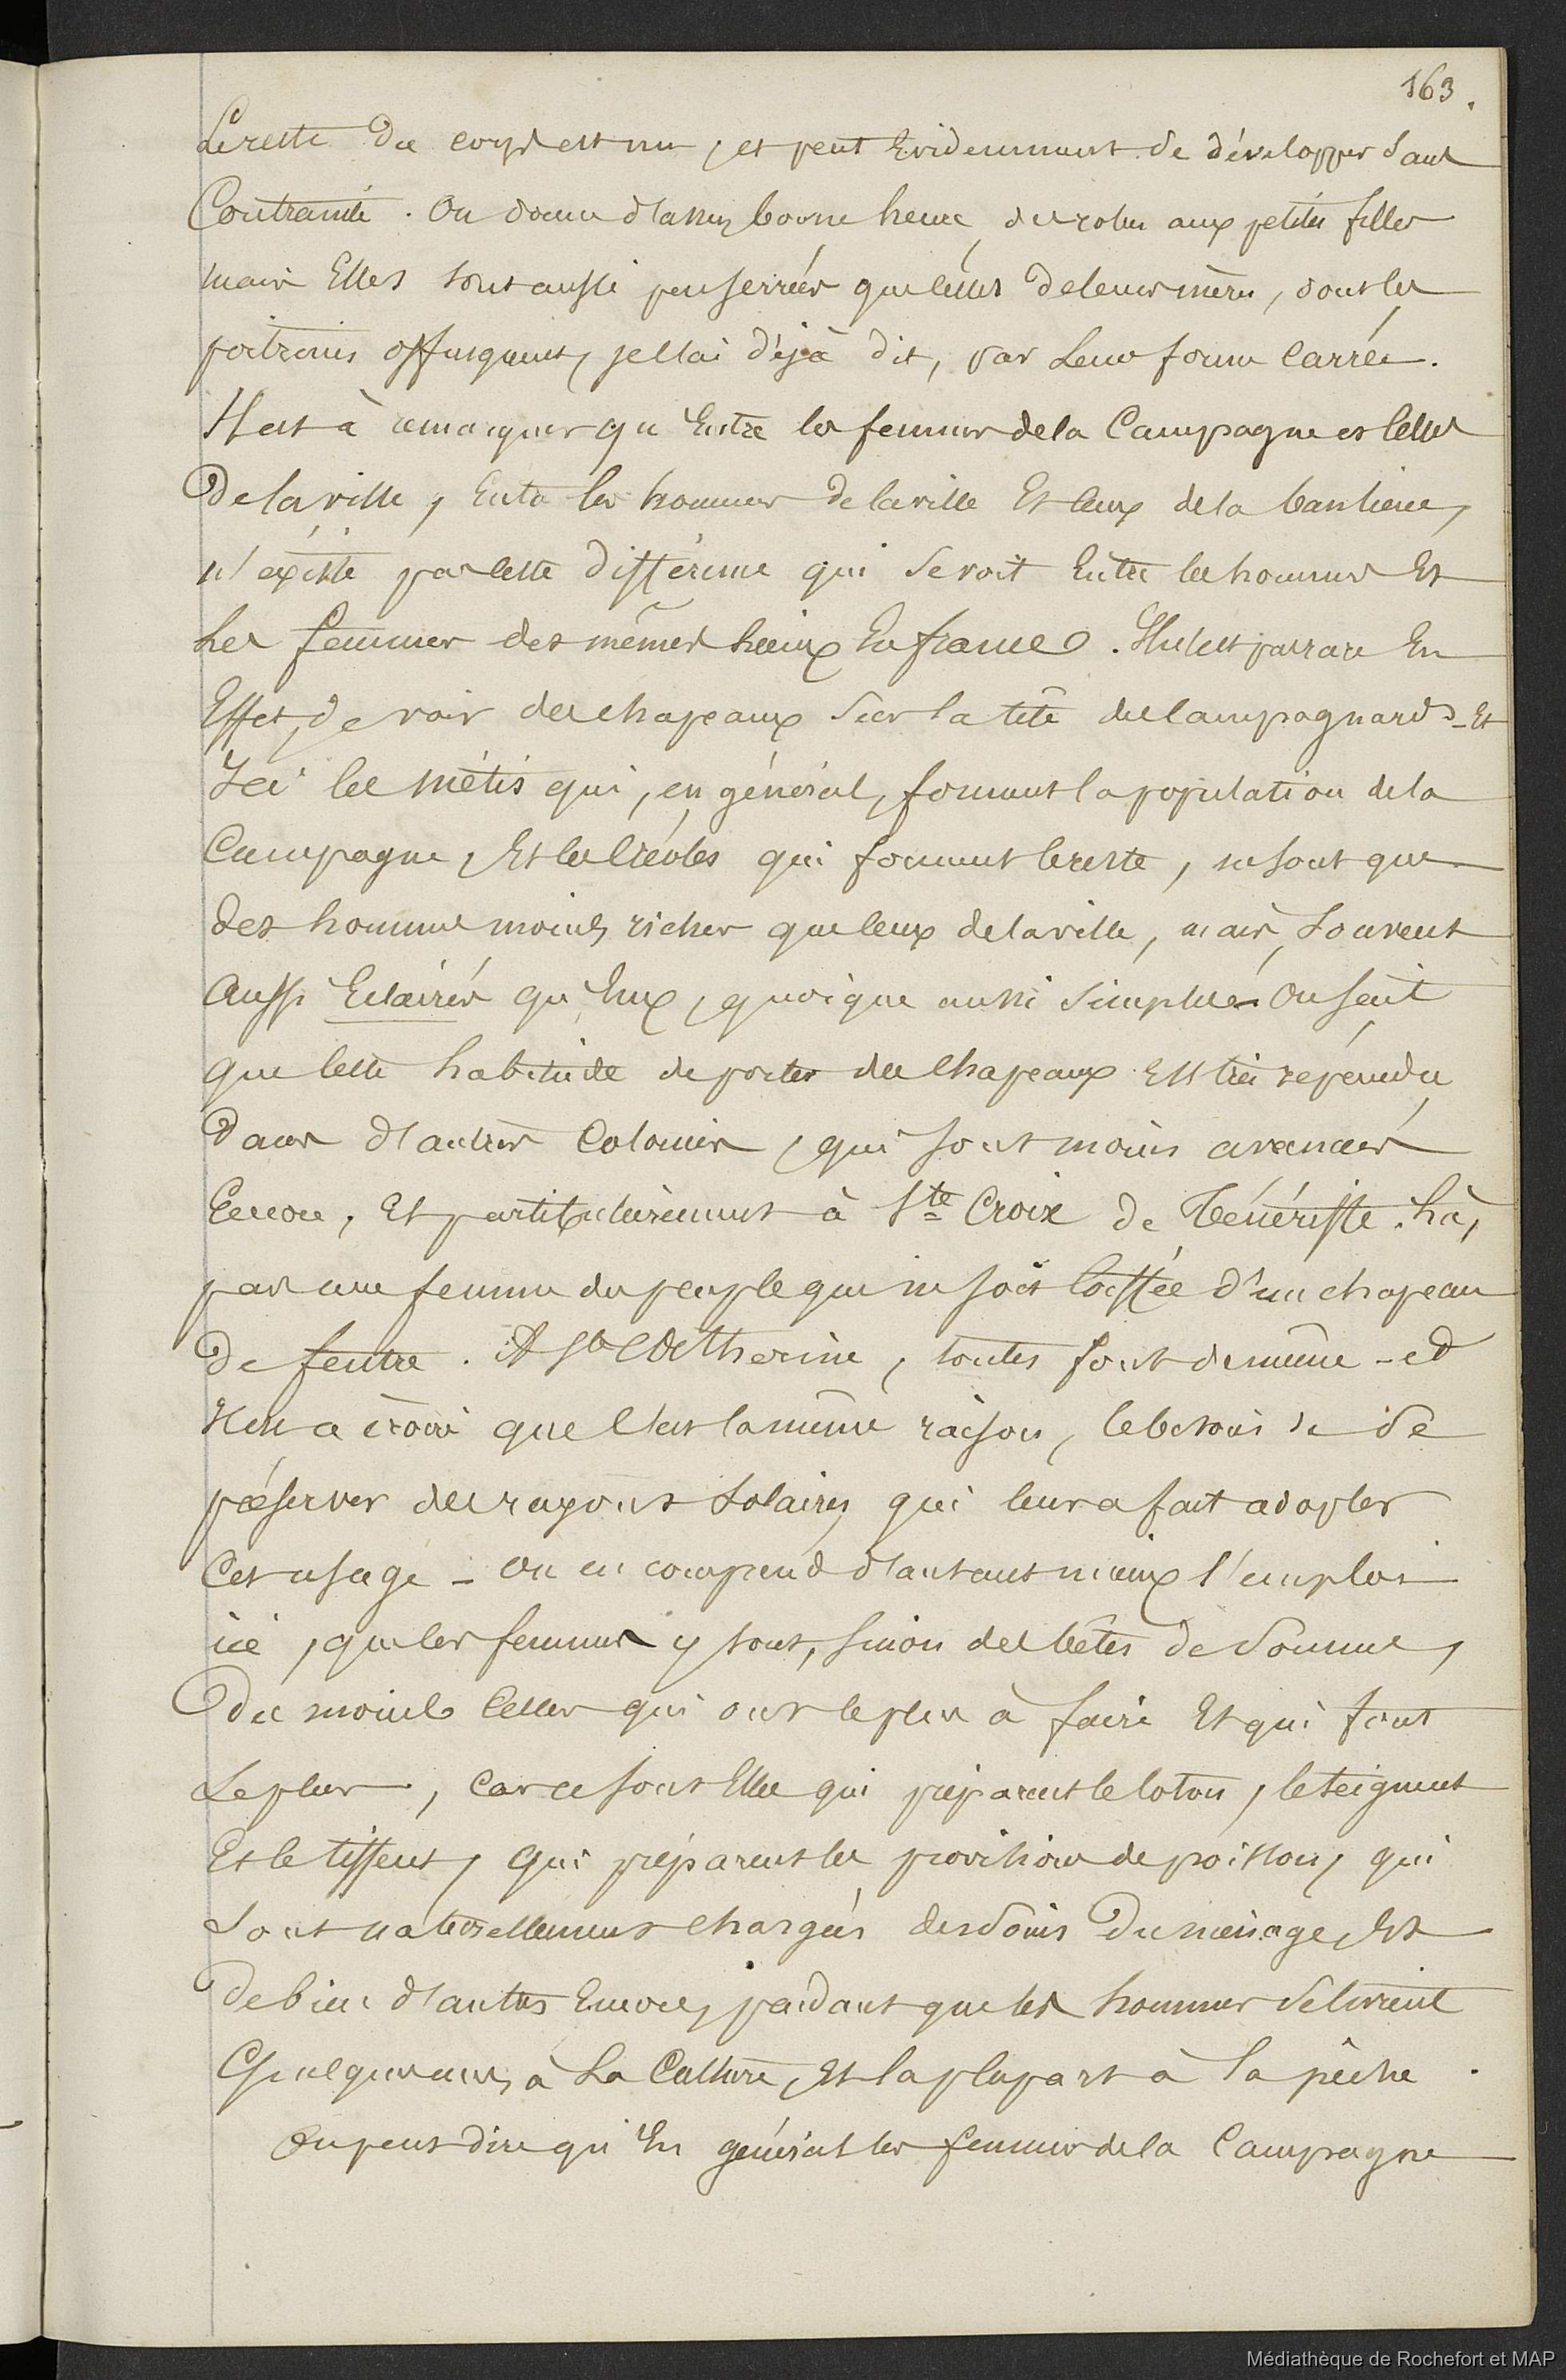 163.
Le reste du corps est nu, et peut Evidemment se développer sans
Contrainte. On donne d'assez bonne heure, des robes aux petites filles
mais Elles sont aussi peu serrées que celles de leurs mères, dont les
poitrines offusquent, je l'ai déjà dit, par Leur forme Carrée.
Il est à remarquer qu'Entre les femmes de la Campagne et Celles
De la ville, Entre les hommes de la ville Et Ceux de la banlieue,
n'existe pas Cette Différence qui se voit Entre les hommes Et
Les femmes des mêmes Lieux En france. Il n'est pas rare En
Effet, de voir des chapeaux sur la tête des Campagnards - Et
Ici les métis qui, en général, forment la population de la
Campagne, Et les Créoles qui forment le reste, ne sont que
des hommes moins riches que Ceux de la ville, mais souvent
aussi Eclairés qu'Eux, quoique aussi simples. On sait
que Cette habitude de porter des Chapeaux Est très répandue
Dans d'autres Colonies, qui sont moins avancées
Encore, Et particulièrement à Ste Croix de Ténériffe. Là,
pas une femme du peuple qui ne soit Coiffée d'un chapeau
De feutre. A Ste Catherine, toutes sont de même - et
Il est à croire que C'est la même raison, le besoin de se
préserver des rayons solaires qui leur a fait adopter
Cet usage - On en comprend d'autant mieux l'emploi
ici, que les femmes y sont, sinon des bêtes de somme,
Du moins Celles qui ont le plus à faire Et qui font
Le plus, Car ce sont Elles qui préparent le Coton, le teignent
Et le tissent, qui préparent les provisions de poisson, qui
sont naturellement Chargées des soins Du ménage, Et
De bien d'autres Encore, pendant que les hommes se livrent
Quelques uns, à La Culture, Et la plupart à la pêche.
On peut dire qu'En général les femmes de la Campagne
Médiathèque de Rochefort et MAP